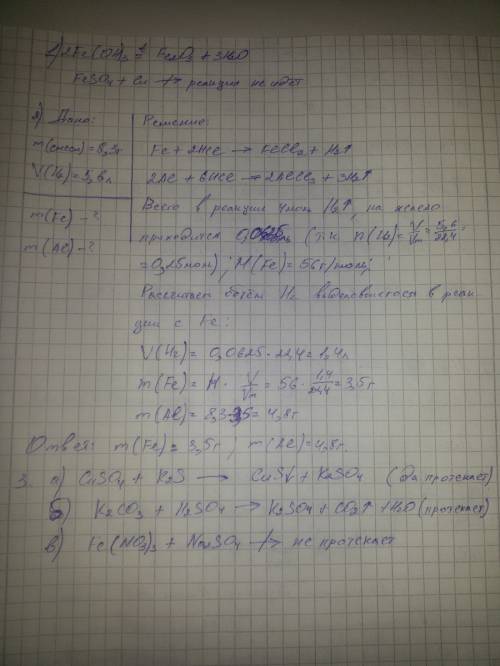 1) 2Fe(OH)3 t= Fe2O3 + 3H2O
FeSO4 + Cu -/-> реакция не идёт
2) Дано:
m(смеси) = 8,3г
V(H2) = 5,6 л
m(Fe) - ?
m(Al) - ?
Решение:
Fe + 2HCl → FeCl2 + H2↑
2Al + 6HCl → 2AlCl3 + 3H2↑
Всего в реакции 4моль H2↑, на железо
приходится 0,0625 моль (т.к. n(H2) = V/Vm = 5,6/22,4 =
= 0,25моль); M(Fe) = 56г/моль;
Рассчитаем объём H2 выделившегося в реак-
ции с Fe:
V(H2) = 0,0625 · 22,4 = 1,4л
m(Fe) = M · V/Vm = 56 · 1,4/22,4 = 3,5г
m(Al) = 8,3-3,5 = 4,8г
Ответ: m(Fe) = 3,5г; m(Al) = 4,8г.
3. а) CuSO4 + K2S → CuS↓ + K2SO4 (да протекает)
б) K2CO3 + H2SO4 → K2SO4 + CO2↑ + H2O (протекает)
в) Fe(NO3)3 + Na2SO4 -/-> не протекает